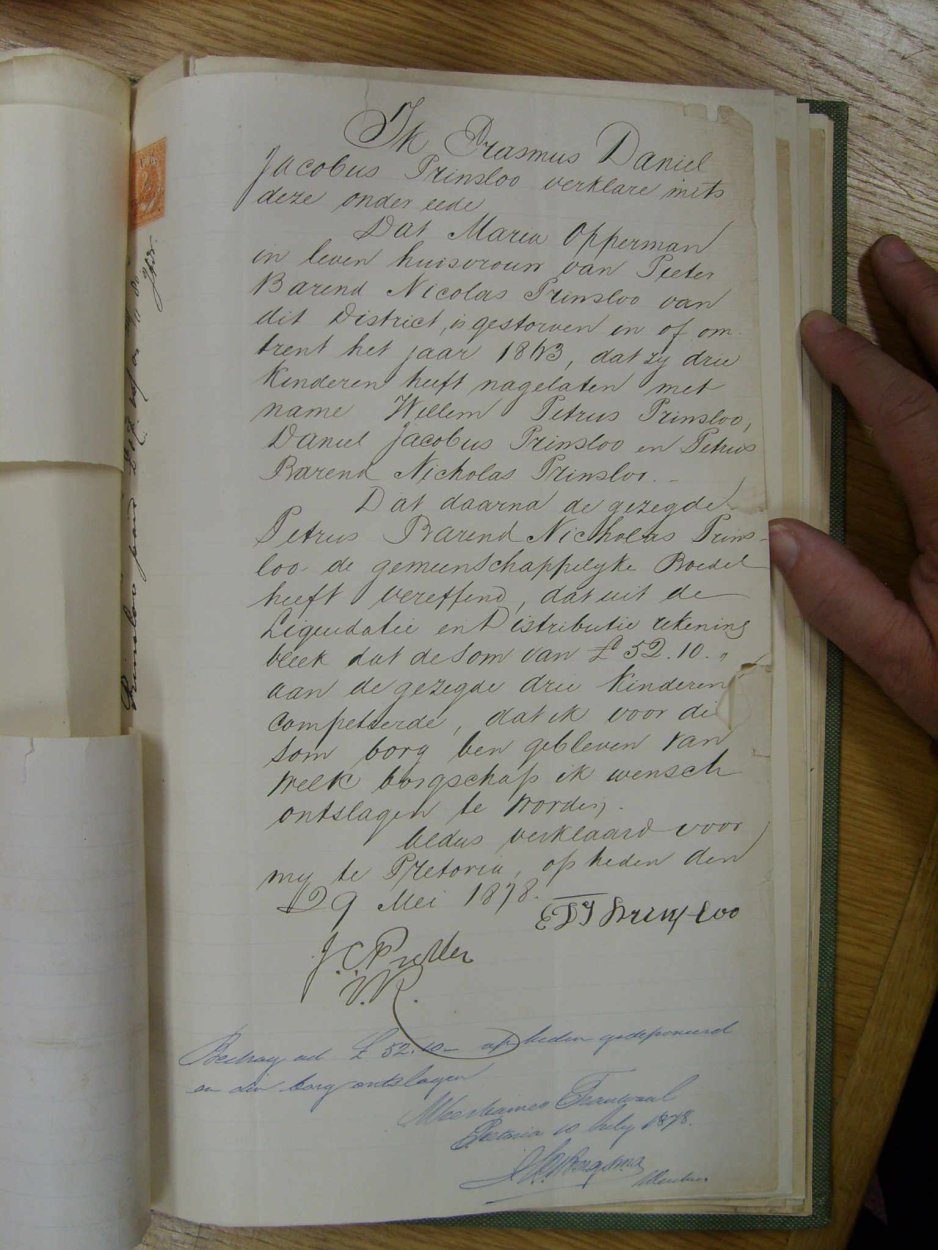 Ik Erasmus Daniel
Jacobus Prinsloo verklare mits
deze onder eede
Dat Maria Opperman
in leven huisvrouw van Pieter
Barend Nicolas Prinsloo van
dit District, is gestorven in of om
trent het jaar 1863, dat zy drie
Kinderen heeft nagelaten met
name Willem Petrus Prinsloo,
Daniel Jacobus Prinsloo en Petrus
Barend Nicholas Prinsloo.
Dat daarna de gezegde
Petrus Barend Nicholas Prins-
loo de gemeenschappelyke Boedel
heeft vereffend, dat uit de
Liquidatie en Distributie rekening
bleek dat de som van £52.10.,,
aan de gezegde drie Kinderen
competeerde, dat ik voor die
som borg ben gebleven van
welk borgschap ik wensch
ontslagen te worden.
Aldus verklaard voor
my te Pretoria, op heden den
29 Mei 1878.
EDJ Prinsloo
J.C. Preller
V.R.
Bedrag ad £52.10- op heden gedeponeerd
en de borg ontslagen
Weeskamer Transvaal
Pretoria 10 July 1878.